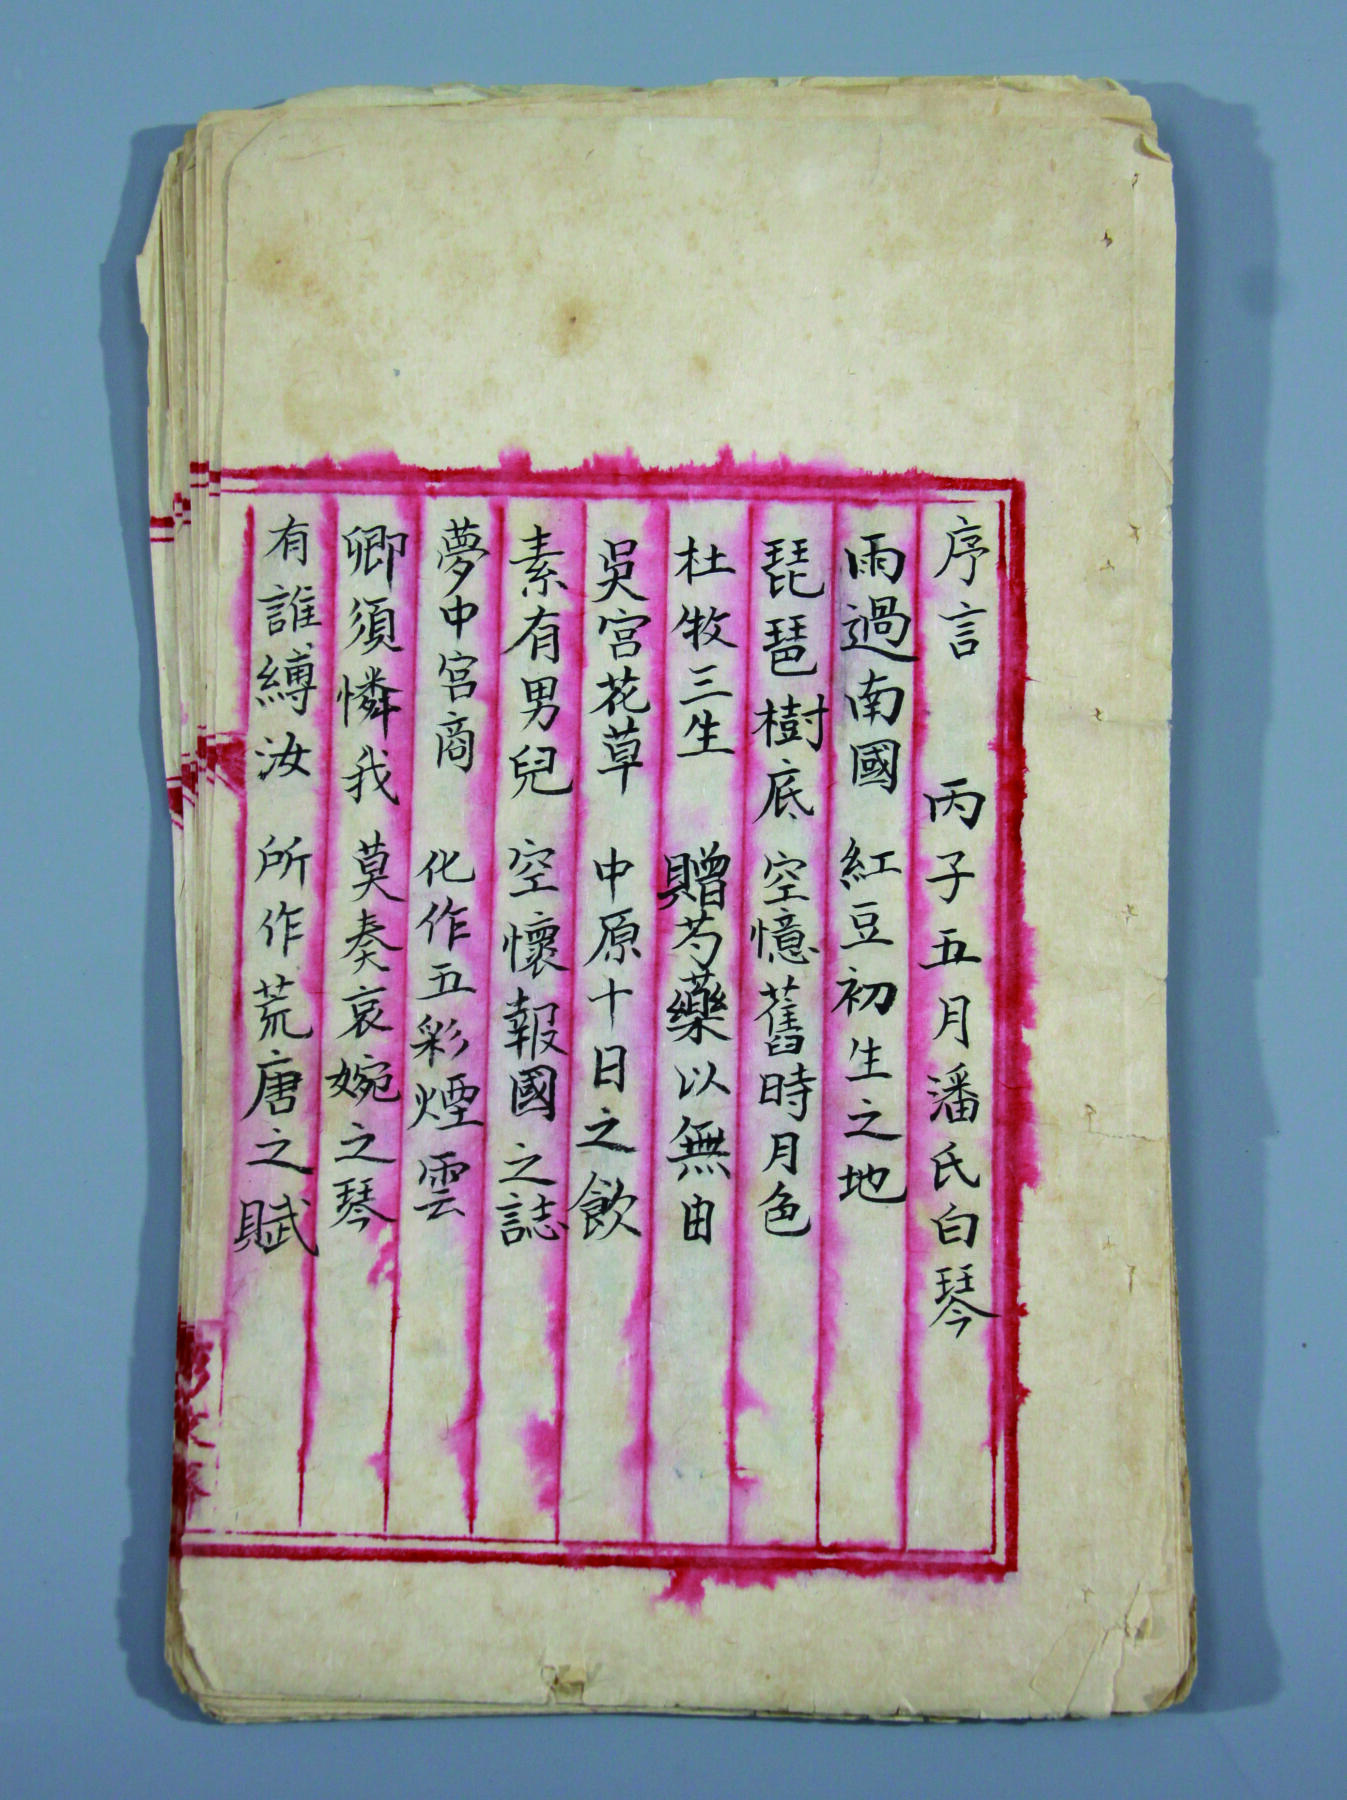 序言 丙子五月潘氏白琴
雨過南國 紅豆初生之地
琵琶樹底 空憶舊時月色
杜牧三生 贈芍藥以無由
吳宮花草 中原十日之飲
素有男兒 空懷報國之誌
夢中宮商 化作五彩煙雲
卿須憐我 莫奏哀婉之琴
有誰縛汝 所作荒唐之賦